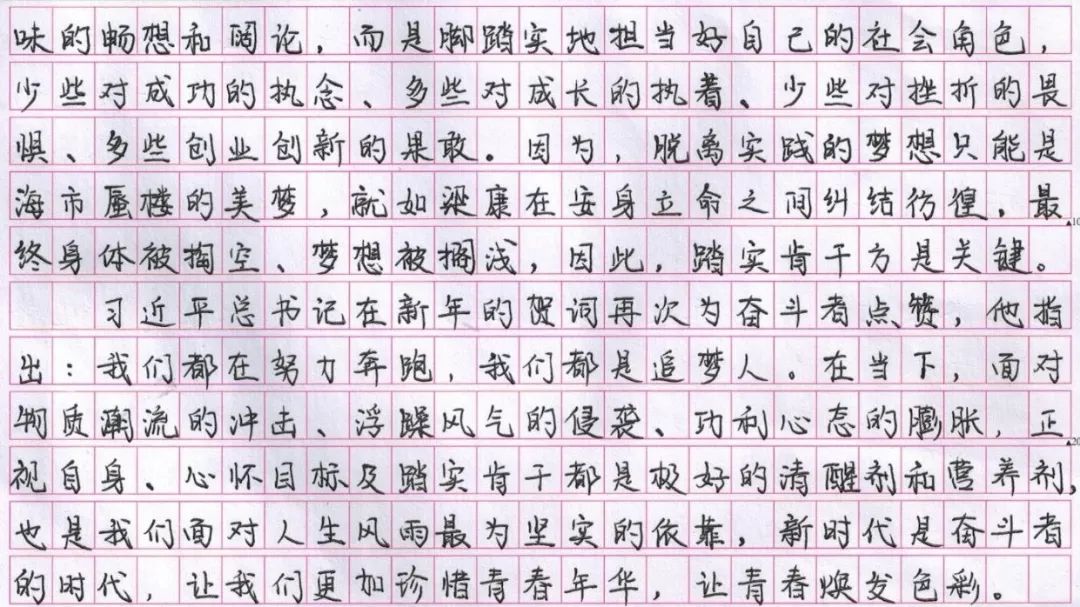 味的畅想和阔论，而是脚踏实地担当好自己的社会角色，
少些对成功的执念、多些对成长的执着、少些对挫折的畏
惧、多些创业创新的果敢。因为，脱离实践的梦想只能是
海市蜃楼的美梦，就如梁康在安身立命之间纠结彷徨，最
终身体被掏空、梦想被搁浅，因此，踏实肯干方是关键。
习近平总书记在新年的贺词再次为奋斗者点赞，他指
出：我们都在努力奔跑，我们都是追梦人。在当下，面对
物质潮流的冲击、浮躁风气的侵袭、功利心态的膨胀，正
视自身、心怀目标及踏实肯干都是极好的清醒剂和营养剂，
也是我们面对人生风雨最为坚实的依靠，新时代是奋斗者
的时代，让我们更加珍惜青春年华，让青春焕发色彩。